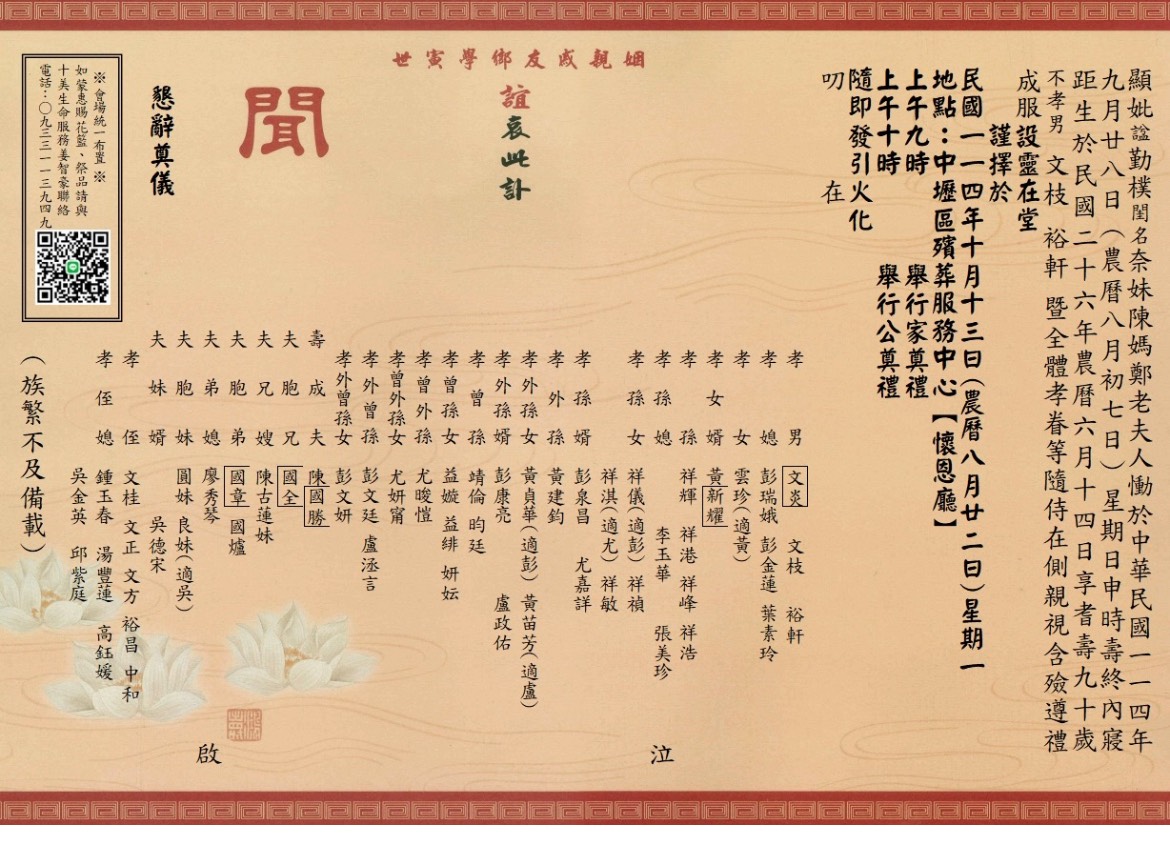 顯妣諡勤樸閨名奈妹陳媽鄭老夫人慟於中華民國一一四年
九月廿八日(農曆八月初七日)星期日申時壽終內寢
距生於民國二十六年農曆六月十四日享耆壽九十歲
不孝男 文枝 裕軒 暨全體孝眷等隨侍在側親視含殮遵禮
成服設靈在堂
謹擇於
民國一一四年十月十三日(農曆八月廿二日)星期一
地點:中壢區殯葬服務中心【懷恩廳】
上午九時 舉行家奠禮
上午十時 舉行公奠禮
隨即發引火化
叨 在
姻親戚友鄉學寅世
誼哀此訃
聞
懇辭奠儀
孝男 文炎 文枝 裕軒
孝媳 彭瑞娥 彭金蓮 葉素玲
孝女 雲珍(適黃)
孝女婿 黃新耀
孝孫 祥輝 祥港 祥峰 祥浩
孝孫媳 李玉華 張美珍
孝孫女 祥儀(適彭) 祥禎
祥淇(適尤) 祥敏
孝孫婿 彭泉昌 尤嘉詳
孝外孫 黃建鈞
孝外孫女 黃貞華(適彭) 黃苗芳(適盧)
孝外孫婿 彭康亮 盧政佑
孝曾孫 靖倫 昀廷
孝曾孫女 益嫙 益緋 妍妘
孝曾外孫 尤晙愷
孝曾外孫女 尤妍甯
孝外曾孫 彭文廷 盧洆言
孝外曾孫女 彭文妍
壽成夫 陳國勝
夫胞兄 國全
夫兄嫂 陳古蓮妹
夫胞弟 國章 國爐
夫弟媳 廖秀琴
夫胞妹 圓妹 良妹(適吳)
夫妹婿 吳德宋
孝侄 文桂 文正 文方 裕昌 中和
孝侄媳 鍾玉春 湯豐蓮 高鈺媛
吳金英 邱紫庭
泣
啟
(族繁不及備載)
※會場統一布置※
如蒙惠賜花籃、祭品請與
十美生命服務姜智豪聯絡
電話:○九三三一一三九四九